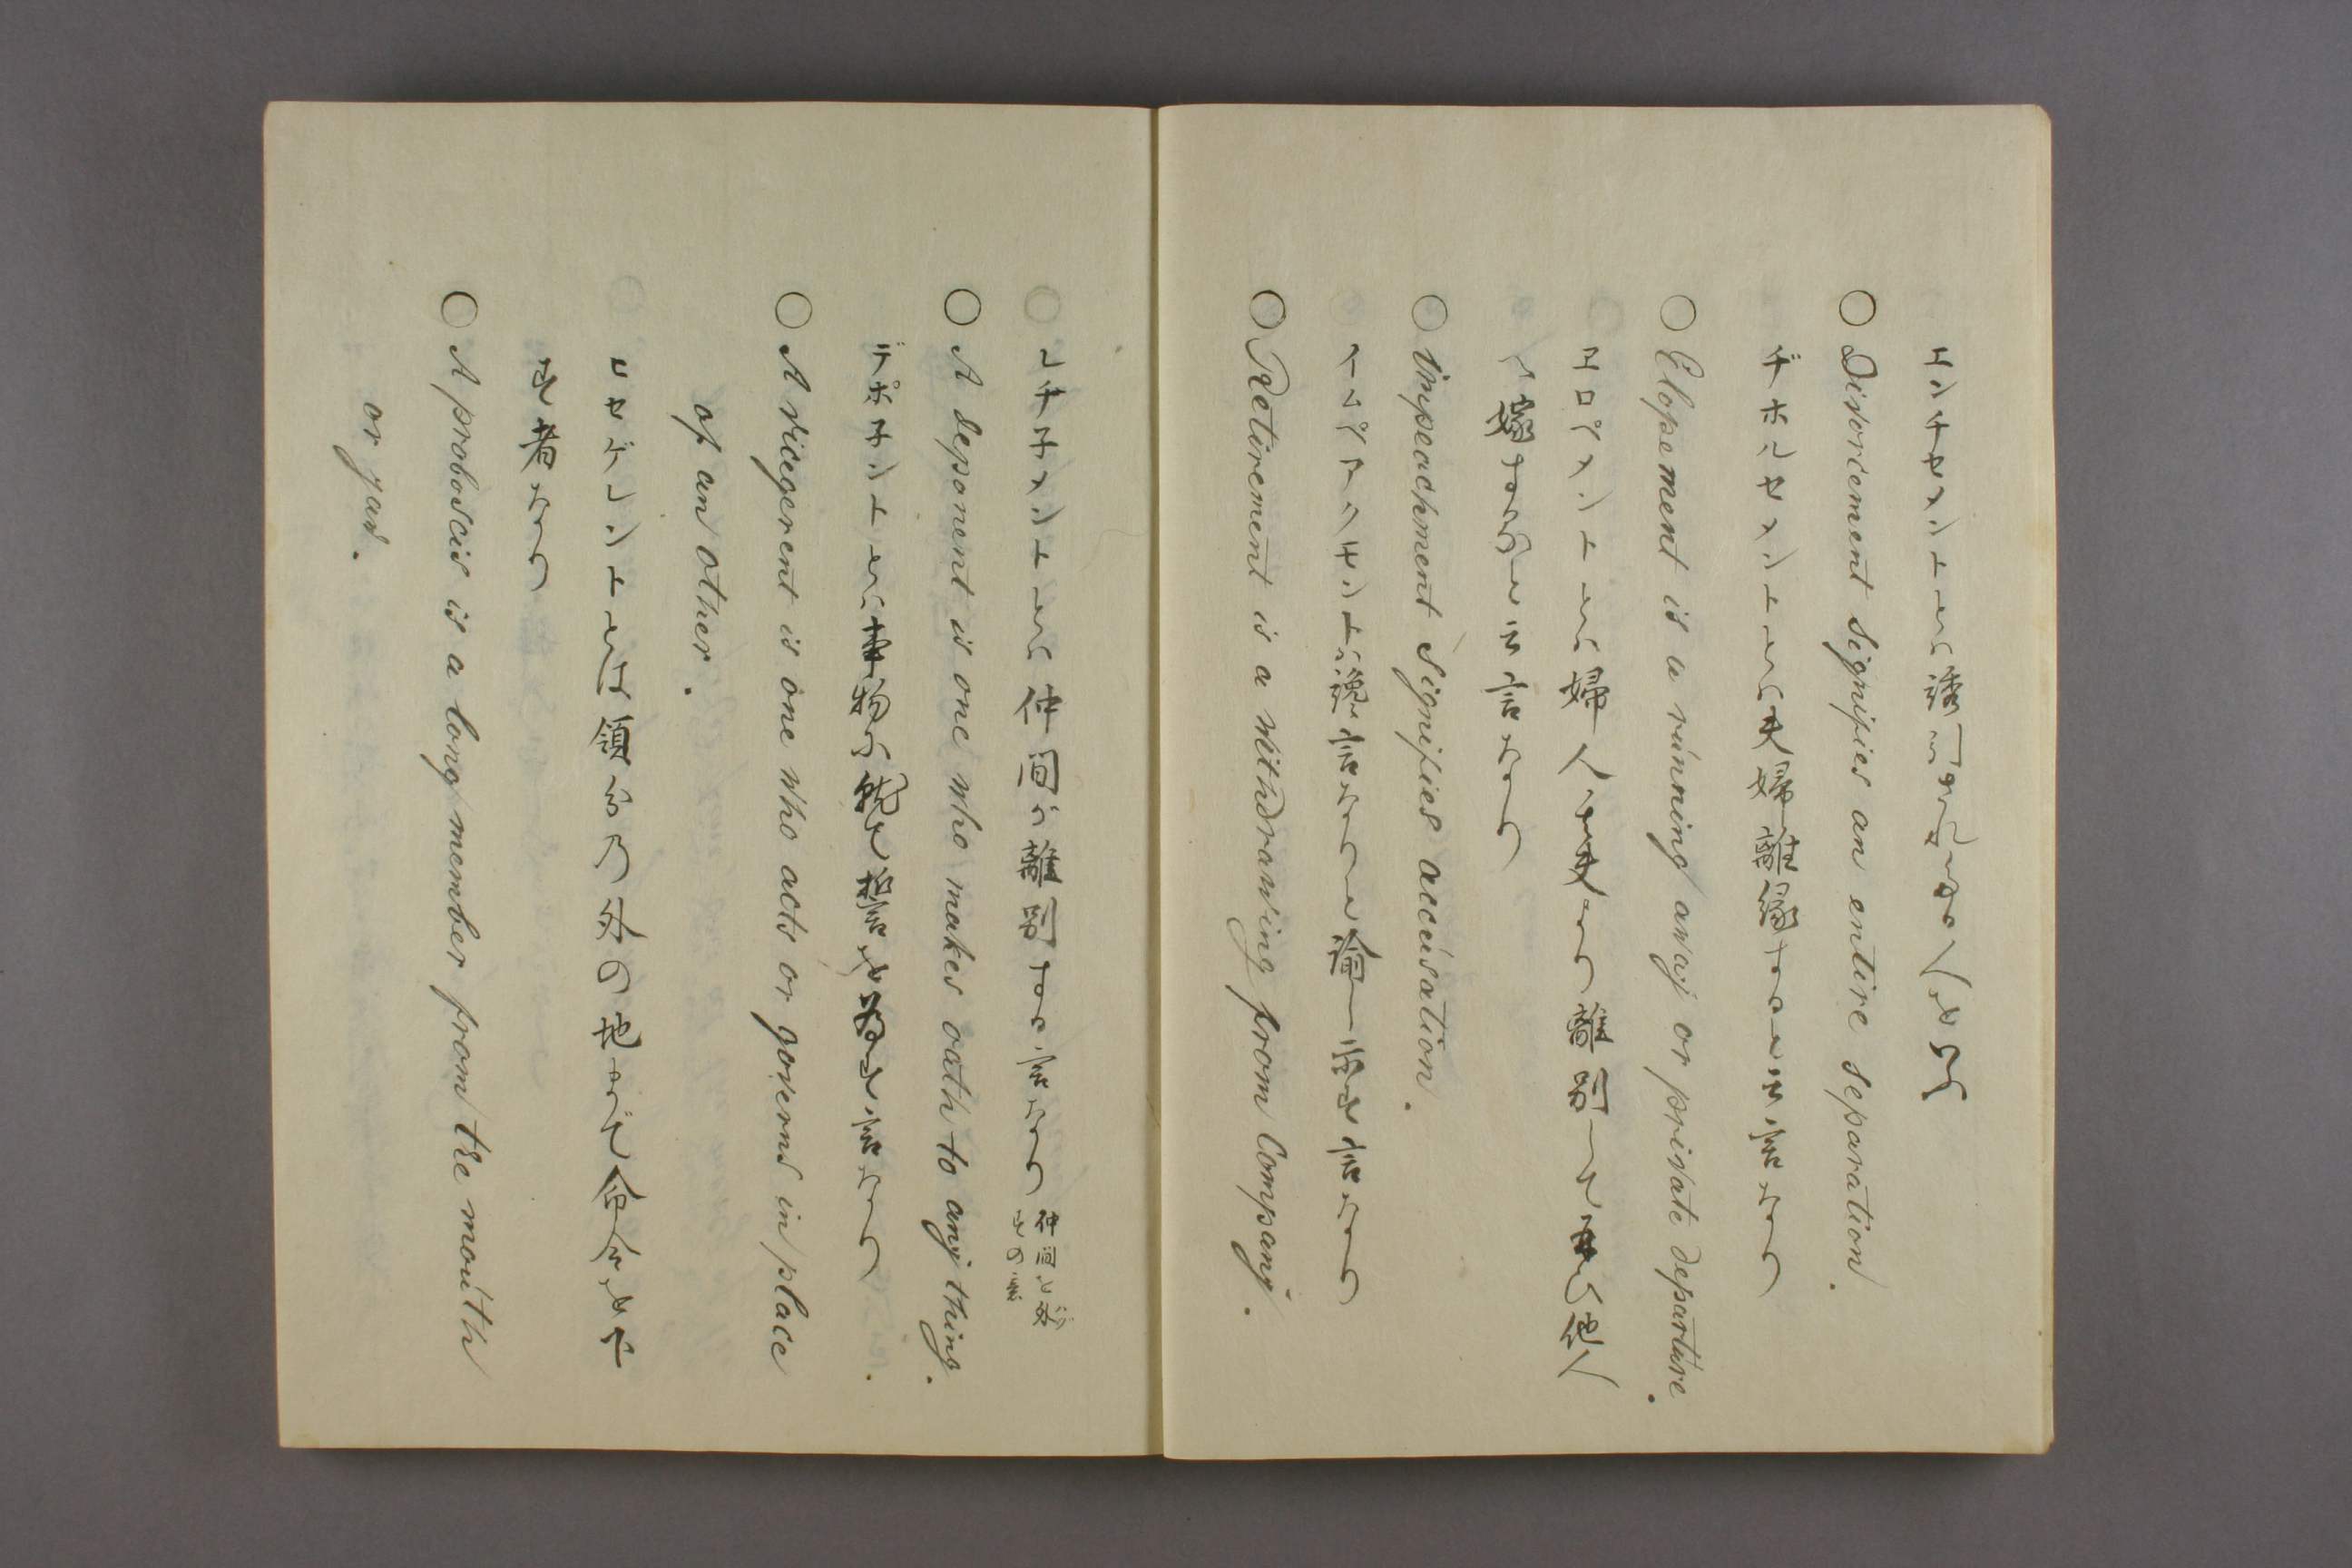 エンチセメントとハ誘
○ Divorcement signifies an entire separation.
ヂホルセメントとハ夫婦離縁すると云言なり
○ Elopement is a running away or private departure.
ヱロペメントとハ婦人夫より離別して他人
へ嫁すると云言なり
○ Impeachment signifies accusation.
イムペアクモントハ讒言なりと諭し示す言なり
○ Retirement is a withdrawing from Company.
レチ子メントとハ仲間ゟ離別する言なり 仲間を
すの意
○ A deponent is one who makes oath to any thing.
デポ子ントとハ事物に就て誓を為す言なり
○ A vicegerent is one who acts or governs in place
of an other.
ヒセゲレントとは領分乃外の地まで命令を下
す者なり
○ A proboscis is a long member from the mouth
or jaw.